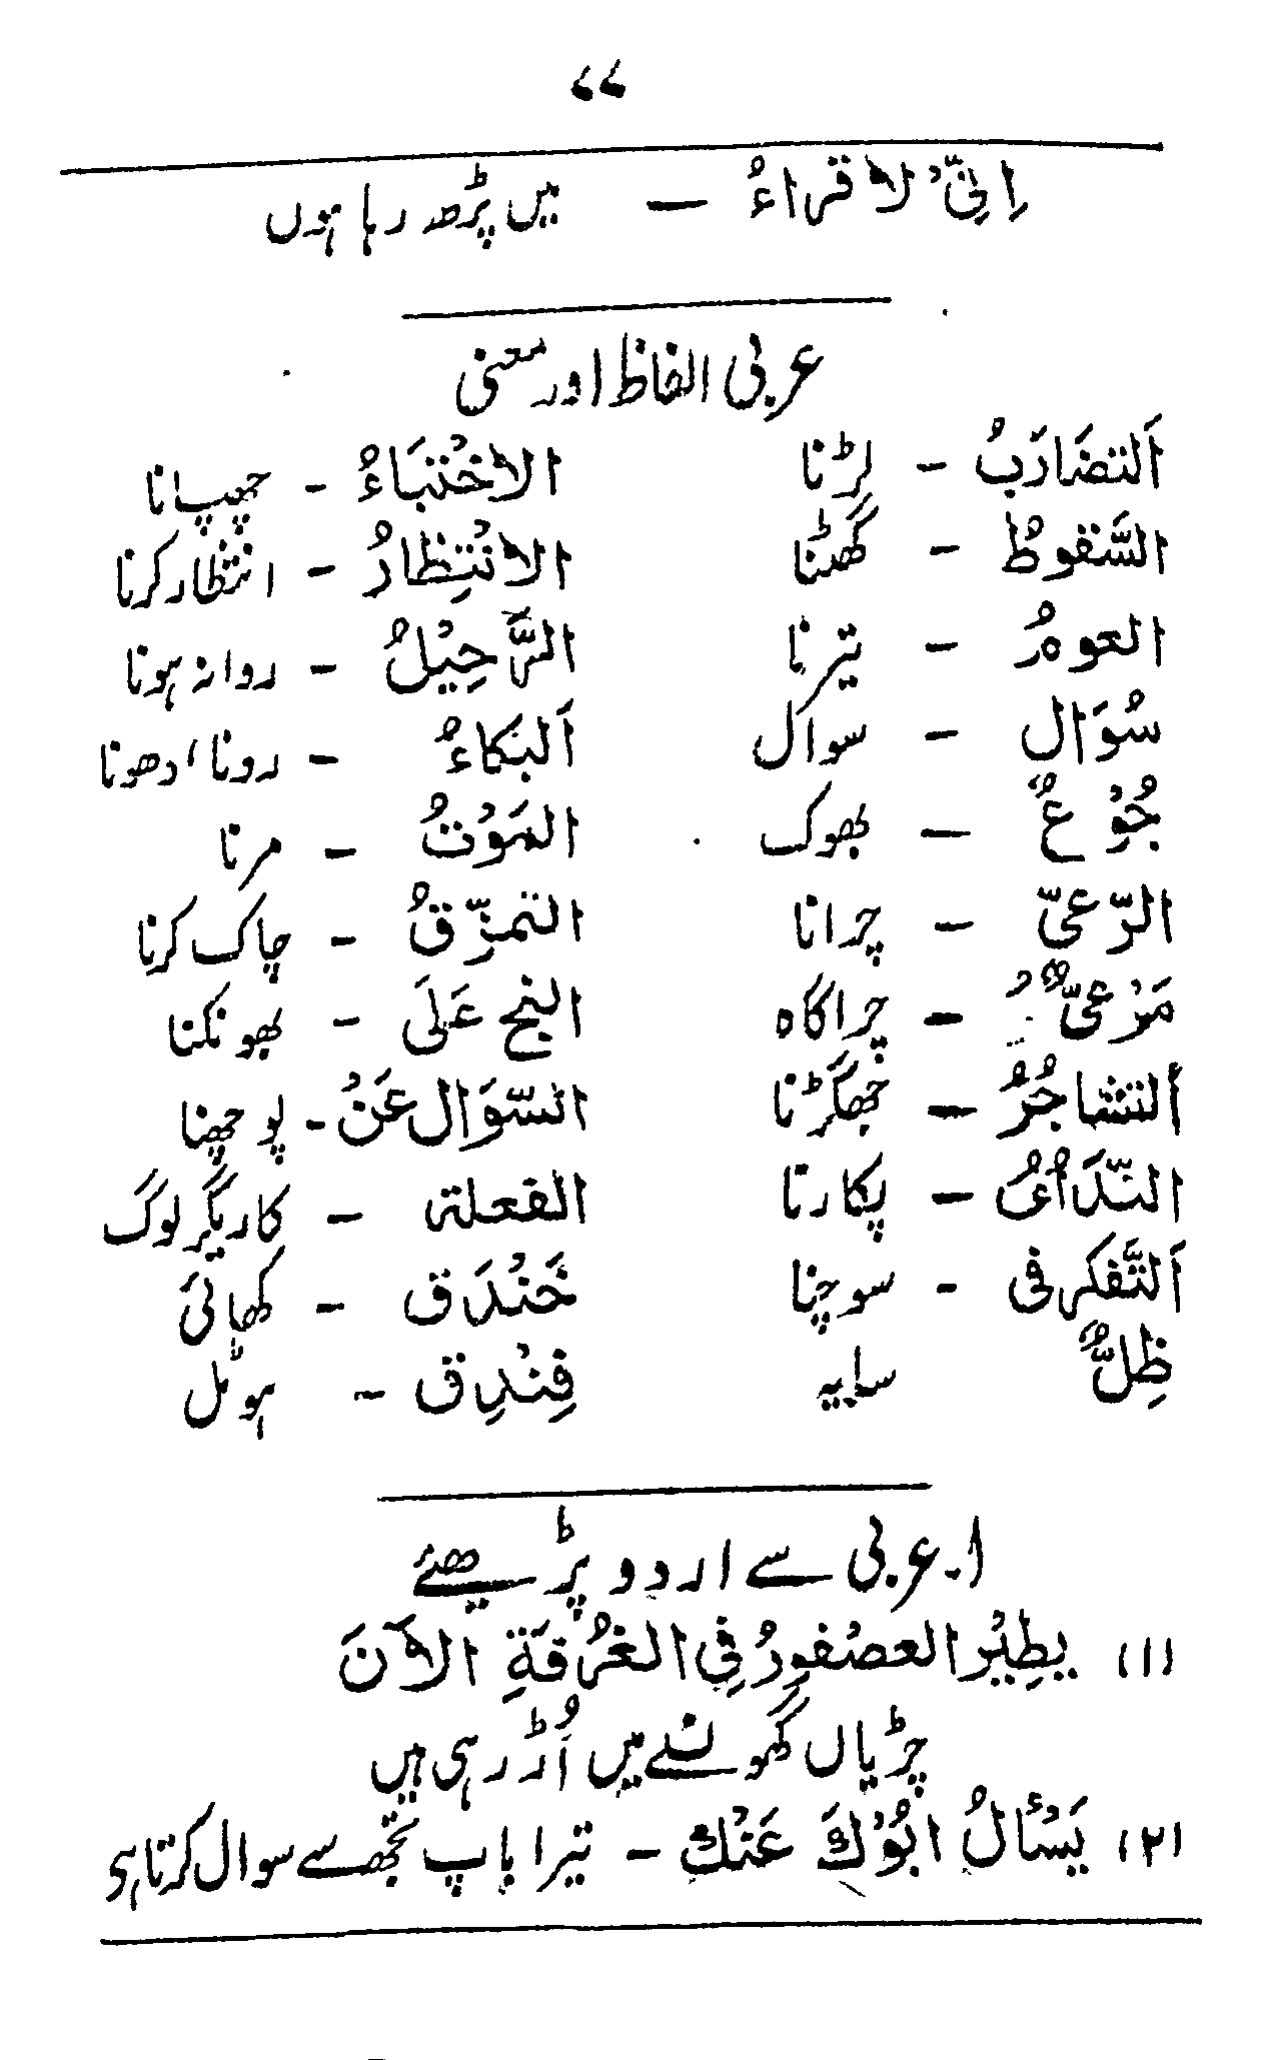 ۷۷
اِنِّیْ لاقراءُ – میں پڑھ رہا ہوں
عربی الفاظ اور معنی
اَلتضَارَبُ – لڑنا الاخْتبَاءُ – چھپانا
السَّقوطُ – گھٹنا الانْتِظارُ – انتظار کرنا
العومُ – تیرنا الرَّحِیْلُ – روانہ ہونا
سُوَال – سوال اَلبَکاءُ – رونا، دھونا
جُوْعٌ – بھوک المَوْتُ – مرنا
الرّعیّ – چرانا التمزّقُ – چاک کرنا
مَرْعیٌّ – چراگاہ النبح عَلَی – بھونکنا
اَلتشاجُرُ – جھگڑنا السّوَال عَنْ – پوچھنا
النّدَاُیُ – پکارنا الفعلۃ – کاریگر لوگ
اَلتَّفکر فی – سوچنا خَنْدَق – کھائی
ظِلٌّ سایہ فِنْدِق – ہوٹل
۱۔ عربی سے اردو پڑھئے
(۱) یطِیْر العصْفورُ فِی الغُرْفَۃِ الآنَ
چڑیاں گھونسلے میں اُڑ رہی ہیں
(۲) یَسْأَلُ ابُوْكَ عَنْك – تیرا باپ تجھ سے سوال کرتا ہی